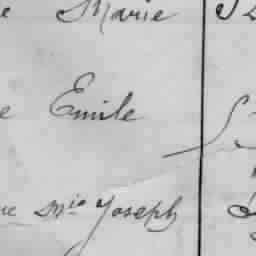 e Marie
e Emile
ue Mie Joseph